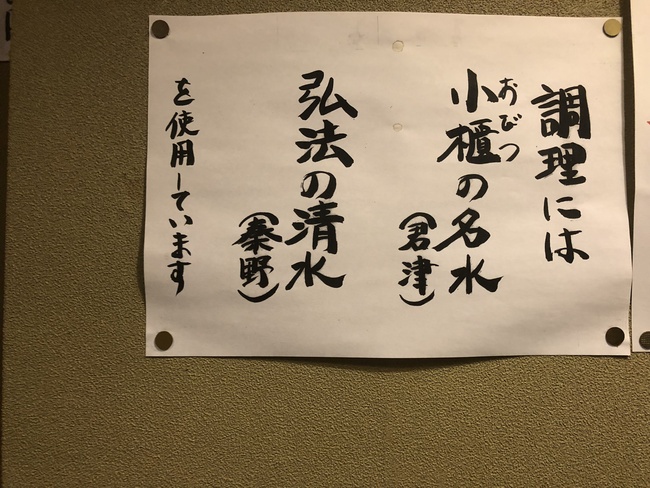 調理には
おびつ
小櫃の名水
(君津)
弘法の清水
(秦野)
を使用しています